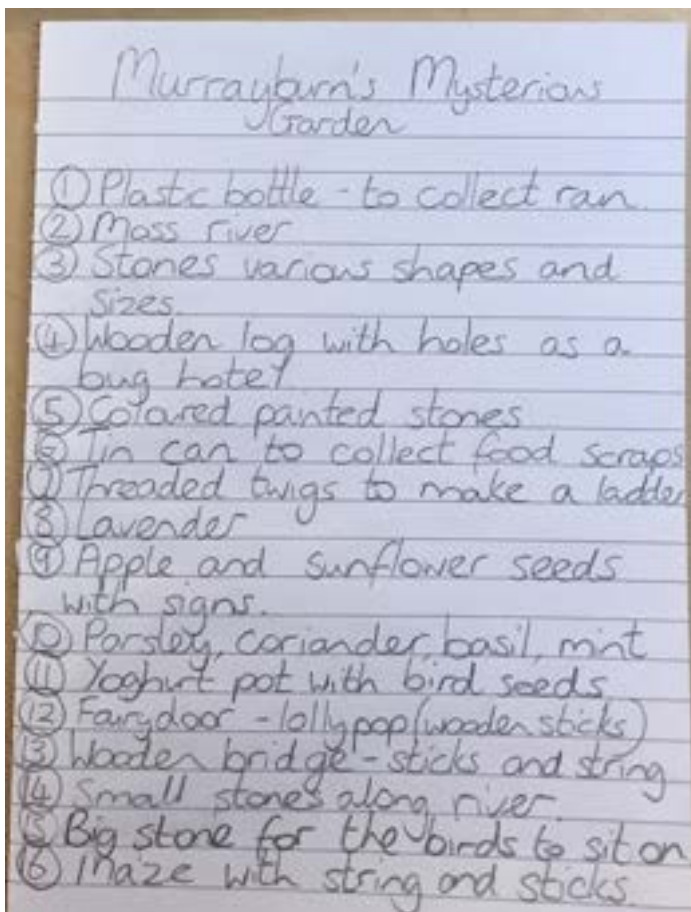 Murrayburn's Mysterious
Garden
① Plastic bottle - to collect ran.
② Moss river
③ Stones various shapes and
sizes.
④ Wooden log with holes as a
bug hotel
⑤ Colared panted stones
⑥ Tin can to collect food scraps
⑦ Threaded twigs to make a ladder
⑧ Lavender
⑨ Apple and sunflower seeds
with signs.
⑩ Parsley, coriander, basil, mint
⑪ Yoghurt pot with bird seeds
⑫ Fairy door - lollypop (wooden sticks)
⑬ Wooden bridge - sticks and string
⑭ Small stones along river.
⑮ Big stone for the birds to sit on
⑯ Maze with string and sticks.